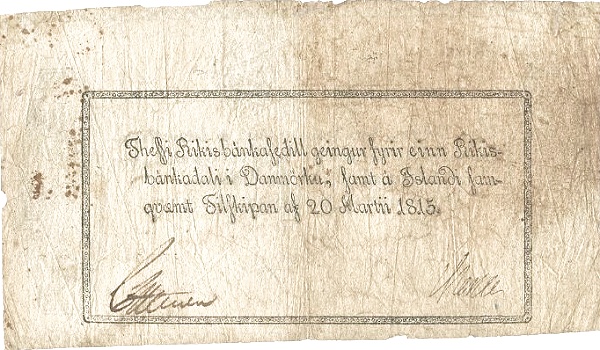 Thessi Rikisbánkasedill geingur fyrir einn Rikis-
bánkadali i Danmörku, samt á Islandi sam-
qvæmt Tilskipan af 20 Martii 1815.